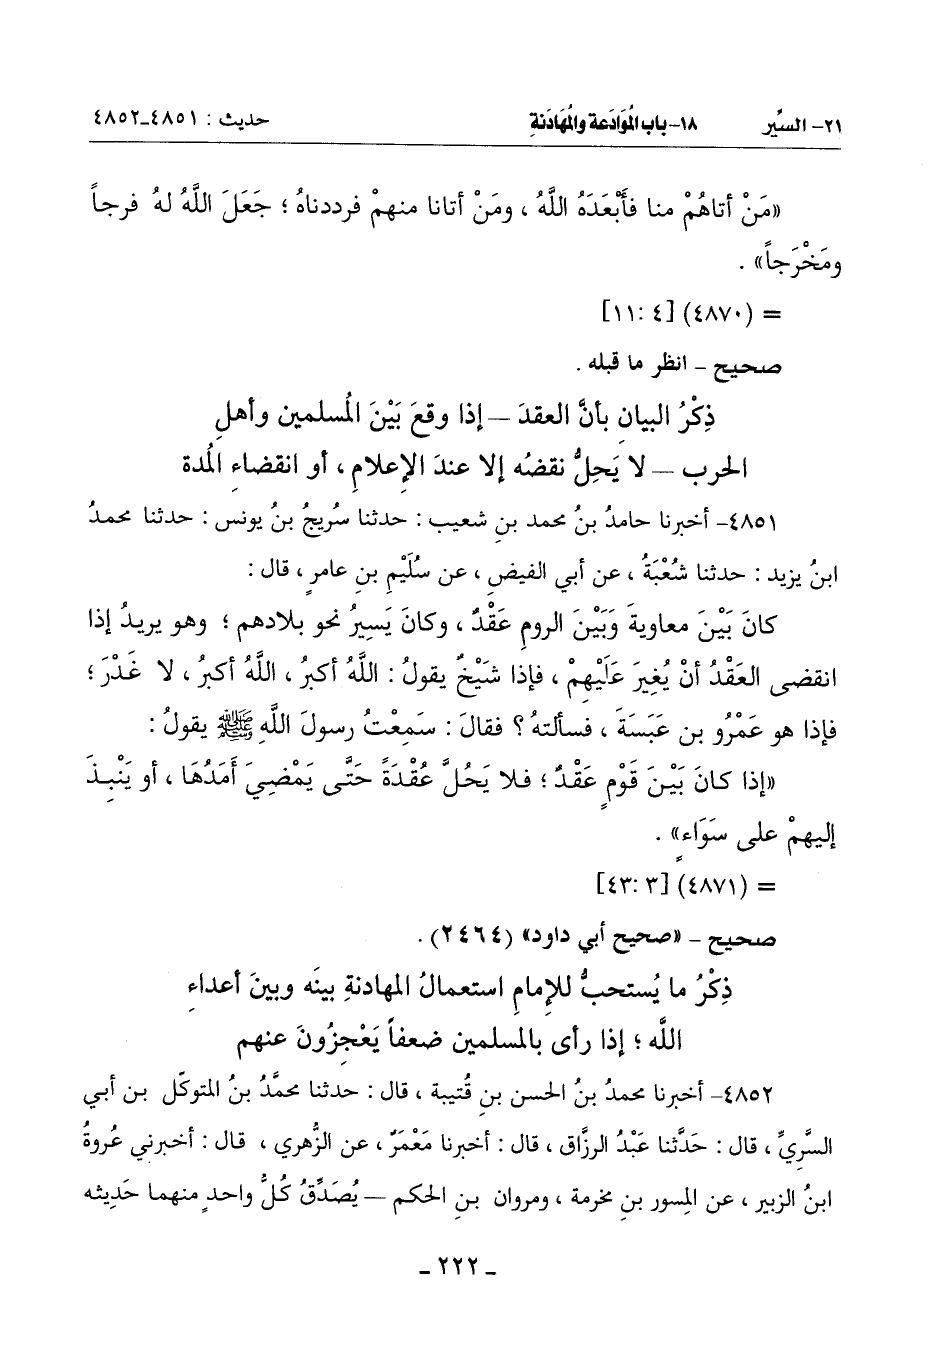 ٢١- السِّير ١٨-باب المُوَادَعة والمُهَادَنة حديث : ٤٨٥١-٤٨٥٢
«مَنْ أتاهُمْ منا فأَبْعَدَهُ اللَّهُ ، ومَنْ أتانا منهمْ فرددناهُ ؛ جَعَلَ اللَّهُ لهُ فرجاً
ومَخْرَجاً» .
= (٤٨٧٠) [٤ :١١]
صحيح - انظر ما قبله .
ذِكْرُ البيانِ بأنَّ العقدَ – إذا وقعَ بَيْنَ المُسلمين وأهلِ
الحرب – لا يَحِلُّ نقضُه إلا عندَ الإعلامِ ، أو انقضاءِ المُدة
٤٨٥١- أخبرنا حامدُ بنُ محمد بنِ شعيب : حدثنا سُريجُ بنُ يونس : حدثنا محمدُ
ابنُ يزيد : حدثنا شُعْبَةُ ، عن أبي الفيضِ ، عن سُلَيْمِ بنِ عامرٍ ، قال :
كانَ بَيْنَ معاويةَ وَبَيْنَ الرومِ عَقْدٌ ، وكانَ يَسِيرُ نحو بلادهم ؛ وهو يريدُ إذا
انقضى العَقْدُ أنْ يُغِيرَ عَلَيْهِمْ ، فإذا شَيْخٌ يقولُ : اللَّهُ أكبرُ ، اللَّهُ أكبرُ ، لا غَدْرَ ؛
فإذا هو عَمْرُو بن عَبَسَةَ ، فسألتهُ ؟ فقالَ : سَمِعْتُ رسولَ اللَّهِ ﷺ يقولُ :
«إذا كانَ بَيْنَ قَوْمٍ عَقْدٌ ؛ فلا يَحُلَّ عُقْدَةً حَتَّى يَمْضِيَ أَمَدُهَا ، أو يَنْبِذَ
إليهمْ على سَوَاءٍ» .
= (٤٨٧١) [٣ :٤٣]
صحيح - «صحيح أبي داود» (٢٤٦٤) .
ذِكْرُ ما يُستحبُّ للإمامِ استعمالُ المهادنةِ بينَه وبينَ أعداءِ
اللَّه ؛ إذا رأى بالمسلمين ضعفاً يَعْجِزُونَ عنهم
٤٨٥٢- أخبرنا محمدُ بنُ الحسن بنِ قُتيبة ، قال : حدثنا محمَّدُ بنُ المتوكّل بن أبي
السَّريِّ ، قال : حَدَّثنا عَبْدُ الرزَّاق ، قال : أخبرنا مَعْمَرٌ ، عن الزُّهري ، قال : أخبرني عُروةُ
ابنُ الزبير ، عن المِسور بنِ مخرمة ، ومروان بنِ الحكم – يُصَدِّقُ كُلُّ واحدٍ منهما حَديثه
- ٢٢٢ -